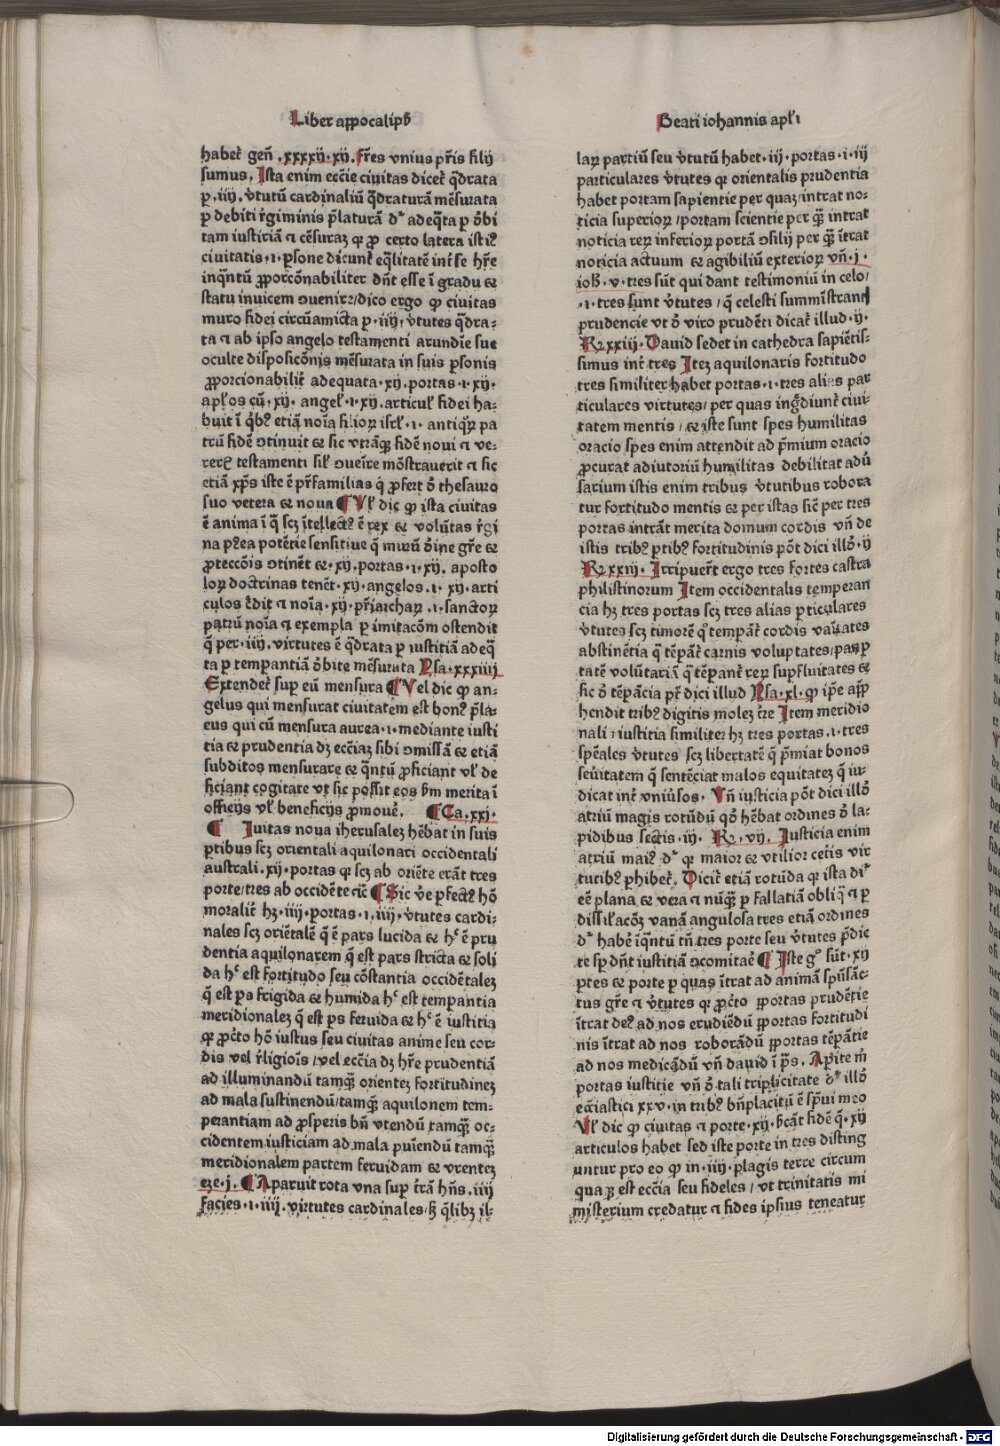 Liber appocalipẜ
habet᷑ gen̄ .xxxxij.xij. fr̄es vnius pr̄is filij
sumus. Ista enim ecc̄ie ciuitas dicet᷑ q̄drata
ꝑ .iiij. v̓tutū cardinaliū q̄draturā mēsurata
ꝑ debiti r̄giminis p̄laturā
tam iusticiā ⁊ cēsuraꝫ ꝙ ꝓ certo latera isti᷒
ciuitatis .i. ꝑsone dicunt᷑ eq̄litatē int᷑ se hr̄e
inq̄ntū ꝓporcōnabiliter dn̄t esse ī gradu ⁊
statu inuicem ꝯuenire/dico ergo ꝙ ciuitas
muro fidei circūamicta ꝑ .iiij. v̓tutes q̄dra-
ta ⁊ ab ipso angelo testamenti arundīe sue
oculte disposicōnis mēsurata in suis ꝑsonis
ꝓporcionabilit᷑ adequata .xij. portas .i. xij.
apl̓os cū .xij. angel̓ .i. xij. articul̓ fidei ha-
buit ī q̓b᷒ etiā noīa filioꝝ isrl̓ .i. antiq̄ꝝ pa
trū fidē ꝯtinuit ⁊ sic vtrāqꝫ fidē noui ⁊ ve-
teris testamenti sil̓ ꝯueīre mōstrauerit ⁊ sic
etiā xp̄s iste ē pr̄familias q̓ ꝓfert ō thesauro
suo vetera ⁊ noua ¶ Vl̓ dic ꝙ ista ciuitas
ē anima ī q̄ scꝫ ītellect᷒ ē rex ⁊ volūtas r̄gi
na p̄t̓ea potētie sensitiue q̄ murū dīne gr̄e ⁊
ꝓteccōis ꝯtinēt ⁊ .xij. portas .i. xij. aposto
loꝝ doctrinas tenēt .xij. angelos .i. xij. arti
culos c̓dit ⁊ noīa .xij. pr̄iarchaꝝ .i. sanctoꝝ
patrū noīa ⁊ exempla ꝑ imitacōm ostendit
q̄ per .iiij. virtutes ē q̄drata ꝑ iusticiā adeq̄
ta ꝑ tempantiā ō̓bite mēsurata Psa.xxxiiij
Extendet᷑ suꝑ eū mensura ¶ Vel dic ꝙ an-
gelus qui mensurat ciuitatem est bon᷒ p̄la-
eus qui cū mensura aurea .i. mediante iusti
tia ⁊ prudentia dꝫ ecc̄iaꝫ sibi ꝯmissā ⁊ etiā
subditos mensurare ⁊ q̄ntū ꝓficiant vl̓ de
ficiant cogitare vt sic possit eos ẜm merita ī
officijs vl̓ beneficijs ꝓmoue᷑. ¶ Ca.xxj.
¶ Iuitas noua iherusaleꝫ hēbat in suis
ꝑtibus scꝫ orientali aquilonari occidentali
australi .xij. portas ꝙ scꝫ ab oriēte erāt tres
porte/tres ab occidēte ⁊c̄ ¶ Sic v̓e ꝑfect᷒ hō
moralit᷑ hꝫ .iiij. portas .i. iiij. v̓tutes cardi-
nales scꝫ oriētalē q̄ ē pars lucida ⁊ hᷤ ē pru
dentia aquilonarem q̄ est pars stricta ⁊ soli
da hᷤ est fortitudo seu cōstantia occidētaleꝫ
q̄ est ꝑs frigida ⁊ humida hᷤ est tempantia
meridionaleꝫ q̄ est ꝑs feruida ⁊ hᷤ ē iustitia
ꝙ ꝓc̄to hō iustus seu ciuitas anime seu cor-
dis vel r̄ligiōis/vel ecc̄ia dꝫ hr̄e prudentiā
ad illuminandū tamqꝫ̄ orienteꝫ fortitudineꝫ
ad mala sustinendū/tamqꝫ̄ aquilonem tem-
perantiam ad ꝓsperis bn̄ vtendū tamqꝫ̄ oc-
cidentem iusticiam ad mala puīendū tamqꝫ̄
meridionalem partem feruidam ⁊ vrenteꝫ
eze.j. ¶ Aparuit rota vna suꝑ t̓rā hn̄s .iiij
facies .i. iiij. virtutes cardinales/ẜꝫ q̄libꝫ il-
Beati iohannis apl̓i
laꝝ partiū seu v̓tutū habet .iij. portas .i. iij
particulares v̓tutes ꝙ orientalis prudentia
habet portam sapientie per quaꝫ/intrat no-
ticia superioꝝ/portam scientie per qꝫ̄ intrat
noticia reꝝ inferioꝝ portā ꝯsilij per qꝫ̄ ītrat
noticia actuum ⁊ agibiliū exterioꝝ vn̄ .j.
ioh̄ .v. tres sūt qui dant testimoniū in celo/
.i. tres sunt v̓tutes/q̄ celesti summīstrant
prudencie vt ō viro prudēti dicat᷑ illud .ij.
Rꝝ xxiij. Dauid sedet in cathedra sapiētis-
simus int᷑ tres Iteꝫ aquilonaris fortitudo
tres similiter habet portas .i. tres alias par
ticulares virtutes/per quas ingdiunt᷑ ciui-
tatem mentis/⁊ iste sunt spes humilitas
oracio spes enim attendit ad p̄mium oracio
ꝓcurat adiutoriū humilitas debilitat adū
sarium istis enim tribus v̓tutibus robora
tur fortitudo mentis ⁊ per istas sic̄ per tres
portas intrāt merita domum cordis vn̄ de
istis trib᷒ ꝑtib᷒ fortitudinis pōt dici illō .ij
Rꝝ xxiij. Irripuer̄t ergo tres fortes castra
philistinorum Item occidentalis temperan
cia hꝫ tres portas scꝫ tres alias ꝑticulares
v̓tutes scꝫ timorē q̓ tempāt᷑ cordis vaītates
abstinētia q̄ tēpāt᷑ carnis voluptates/pauꝑ
tatē volūtariā q̄ tēpant᷑ reꝝ suꝑfluitates ⁊
sic ō tēpācia pt̄ dici illud Psa.xl. ꝙ ip̄e app̄
hendit trib᷒ digitis moleꝫ t̓re Item meridio
nali/iustitia similiter hꝫ tres portas .i. tres
spēales v̓tutes scꝫ libertatē q̄ p̄miat bonos
seūitatem q̄ sentēciat malos equitateꝫ q̄ iu-
dicat int᷑ vniūsos. Vn̄ iusticia pōt dici illō
atriū magis rotūdū qō hēbat ordines ō la-
pidibus sectis .iij. R. vij. Iusticia enim
atriū mai᷒ dr̄ ꝙ maior ⁊ vtilior cet̓is vir
tutib᷒ ꝓhibet᷑. Dicit᷑ etiā rotūda ꝙ ista dꝫ
eē plana ⁊ vera ⁊ nūqꝫ̄ ꝑ fallatiā obliq̄ ⁊ ꝑ
dissil̓acōꝫ vanā angulosa tres etiā ordines
dr̄ habe᷑ īq̄ntū tn̄ tres porte seu v̓tutes p̄die
te sp̄ dn̄t iustitiā ꝯcomitae᷑ ¶ Iste gͦ sūt .xij
ꝑtes ⁊ porte ꝑ quas ītrat ad animā sp̄ūsāc-
tus gr̄e ⁊ v̓tutes ꝙ ꝓc̄to ꝑportas prudētie
ītrat de᷒ ad nos erudiēdū ꝑportas fortitudi
nis ītrat ad nos roborādū ꝑportas tēpātie
ad nos medicādū vn̄ dauid ī p̄s. Aꝑite m̓
portas iustitie vn̄ ō tali triplicitate dr̄ illō
ecc̄iastici xxv. in trib᷒ bn̄placitū ē sp̄ui meo
Vl̓ dic ꝙ ciuitas ⁊ porte .xij. ẜcāt fidē q̄ .xij
articulos habet sed iste porte in tres disting
untur pro eo ꝙ in .iiij. plagis terre circum
quaꝫ est ecc̄ia seu fideles/vt trinitatis mi
misterium credatur ⁊ fides ipsius teneatur
Digitalisierung gefördert durch die Deutsche Forschungsgemeinschaft - DFG